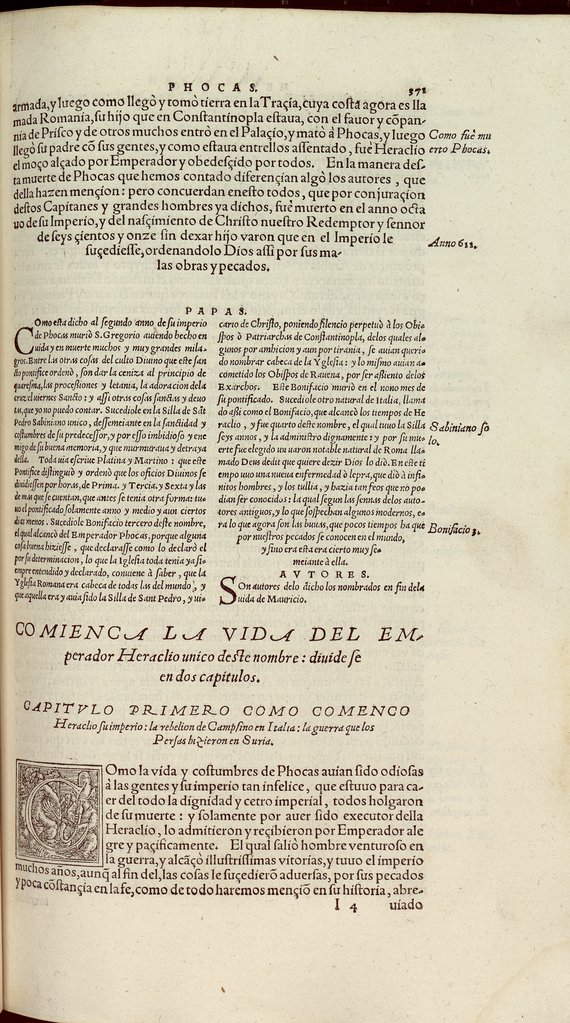 PHOCAS. 372
armada, y luego como llegò y tomò tierra en la Traçia, cuya costa agora es lla
mada Romanía, su hijo que en Constantinopla estaua, con el fauor y cõpan-
nía de Prisco y de otros muchos entrò en el Palaçio, y matò à Phocas, y luego
llegò su padre cõ sus gentes, y como estaua entrellos assentado, fuê Heraclio
el moço alçado por Emperador y obedesçido por todos. En la manera des-
ta muerte de Phocas que hemos contado diferençian algò los autores, que
della hazen mençion: pero concuerdan enesto todos, que por conjuraçion
destos Capitanes y grandes hombres ya dichos, fuê muerto en el anno octa
uo de su Imperio, y del nasçimiento de Christo nuestro Redemptor y sennor
de seys çientos y onze sin dexar hijo varon que en el Imperio le
suçediesse, ordenandolo Dios assi por sus ma-
las obras y pecados.
Como fuê mu
erto Phocas.
Anno 611.
PAPAS.
COmo esta dicho al segundo anno de su imperio
de Phocas muriò S. Gregorio auiendo hecho en
uida y en muerte muchos y muy grandes mila-
gros. Entre las otras cosas del culto Diuino que este san
cto pontifice ordenò, son dar la ceniza al principio de
quaresma, las proçessiones y letania, la adoracion dela
cruz el uiernes Sancto: y assi otras cosas sanctas y deuo
tas, que yo no puedo contar. Sucediole en la Silla de Sāt
Pedro Sabiniano unico, dessemeiante en la sanctidad y
costumbres de su predecessor, y por esso imbidioso y ene
migo de su buena memoria, y que murmuraua y detraya
della. Toda uia escriue Platina y Martino: que este
Pontifice distinguiò y ordenò que los oficios Diuinos se
diuidiessen por horas, de Prima. y Tercia. y Sexta y las
de mas que se cuentan, que antes se tenia otra forma: tu-
uo el pontificado solamente anno y medio y aun ciertos
dias menos. Sucediole Bonifacio tercero deste nombre,
el qual alcançò del Emperador Phocas, porque alguna
cosa buena hiziesse, que declarasse como lo declarò el
por su determinacion, lo que la Iglesia toda tenia ya si-
empre entendido y declarado, conuiene à saber, que la
Yglesia Romana era cabeca de todas las del mundo, y
que aquella era y auia sido la Silla de Sant Pedro, y ui-
cario de Christo, poniendo silencio perpetuò à los Obi-
spos ò Patriarchas de Constantinopla, delos quales al-
gunos por ambicion y aun por tirania, se auian queri-
do nombrar cabeca de la Yglesia: y lo mismo auian a-
cometido los Obispos de Rauena, por ser assiento delos
Exarchos. Este Bonifacio muriò en el nono mes de
su pontificado. Sucediole otro natural de Italia, llama
do assi como el Bonifacio, que alcancò los tiempos de He
raclio, y fue quarto deste nombre, el qual tuuo la Silla
seys annos, y la administro dignamente: y por su mu-
erte fue elegido un uaron notable natural de Roma lla-
mado Deus dedit que quiere dezir Dios lo diò. En este ti
empo uuo una nueua enfermedad ò lepra, que diò à infi-
nitos hombres, y los tullia, y hazia tan feos que no po-
dian ser conocidos: la qual segun las sennas delos auto-
tores antiguos, y lo que sospechan algunos modernos, e-
ra lo que agora son las buuas, que pocos tiempos ha que
por nuestros pecados se conocen en el mundo,
y sino era esta era cierto muy se-
meiante à ella.
AVTORES.
SOn autores delo dicho los nombrados en fin dela
uida de Mauricio.
Sabiniano so
lo.
Bonifacio 3.
COMIENCA LA VIDA DEL EM-
perador Heraclio unico deste nombre: diuide se
en dos capitulos.
CAPITVLO PRIMERO COMO COMENCO
Heraclio su imperio: la rebelion de Campsino en Italia: la guerra que los
Persas hizieron en Suria.
COmo la vida y costumbres de Phocas auían sido odiosas
à las gentes y su imperio tan infelice, que estuuo para ca-
er del todo la dignidad y cetro imperial, todos holgaron
de su muerte: y solamente por auer sido executor della
Heraclio, lo admitieron y reçibieron por Emperador ale
gre y paçificamente. El qual saliò hombre venturoso en
la guerra, y alcãçò illustrissimas vitorías, y tuuo el imperio
muchos años, aunq̃ al fin del, las cosas le suçedierõ aduersas, por sus pecados
y poca cõstançia en la fe, como de todo haremos mençiõ en su historia, abre-
I 4 uiado